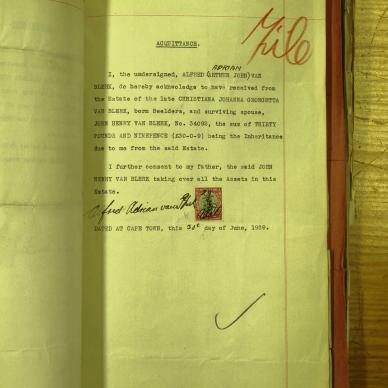 File
ACQUITTANCE.
ADRIAN
I, the undersigned, ALFRED (ARTHUR JOHN) VAN
BLERK, do hereby acknowledge to have received from
the Estate of the late CHRISTIANA JOHANNA GEORGETTA
VAN BLERK, born Smalders, and surviving spouse,
JOHN HENRY VAN BLERK, No. 34092, the sum of THIRTY
POUNDS AND NINEPENCE (£30-0-9) being the Inheritance
due to me from the said Estate.
I further consent to my father, the said JOHN
HENRY VAN BLERK taking over all the Assets in this
Estate.
Alfred Adrian van Blerk
DATED AT CAPE TOWN, this 30th day of June, 1939.